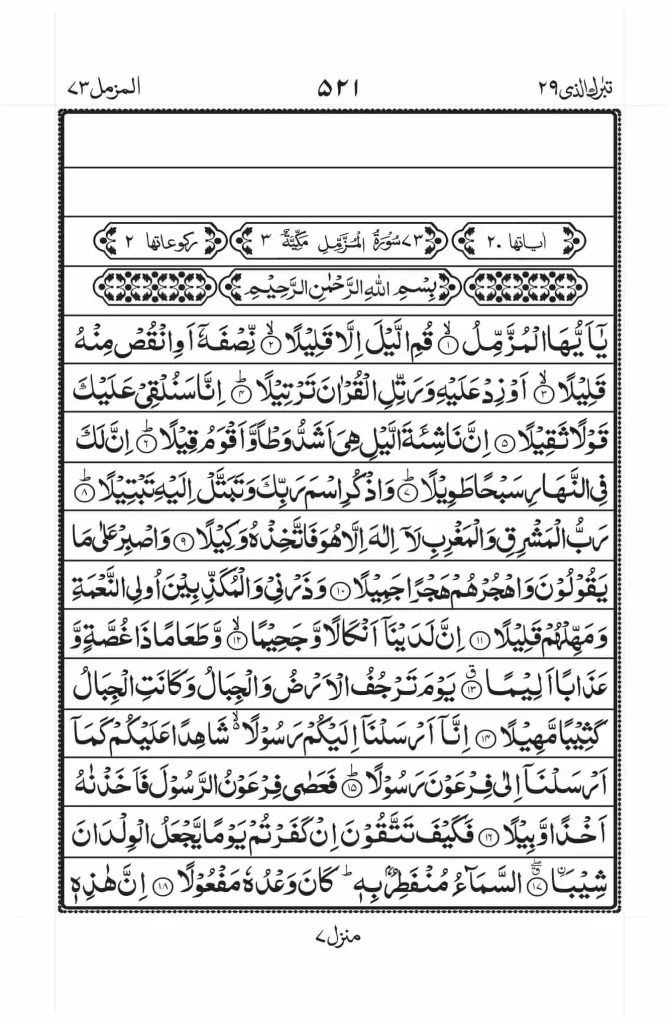 تبٰرك الذی ۲۹ ۵۲۱ المزمل ۷۳
اٰیاتها ۲۰ ۷۳ سُوْرَةُ الْمُزَّمِّلِ مَكِّیَّةٌ ۳ رکوعاتها ۲
بِسْمِ اللهِ الرَّحْمٰنِ الرَّحِیْمِ
یٰۤاَیُّهَا الْمُزَّمِّلُ ۙ﴿۱﴾ قُمِ الَّیْلَ اِلَّا قَلِیْلًا ۙ﴿۲﴾ نِّصْفَهٗۤ اَوِ انْقُصْ مِنْهُ
قَلِیْلًا ۙ﴿۳﴾ اَوْ زِدْ عَلَیْهِ وَ رَتِّلِ الْقُرْاٰنَ تَرْتِیْلًا ؕ﴿۴﴾ اِنَّا سَنُلْقِیْ عَلَیْكَ
قَوْلًا ثَقِیْلًا ﴿۵﴾ اِنَّ نَاشِئَةَ الَّیْلِ هِیَ اَشَدُّ وَطْاً وَّ اَقْوَمُ قِیْلًا ؕ﴿۶﴾ اِنَّ لَكَ
فِی النَّهَارِ سَبْحًا طَوِیْلًا ؕ﴿۷﴾ وَ اذْكُرِ اسْمَ رَبِّكَ وَ تَبَتَّلْ اِلَیْهِ تَبْتِیْلًا ؕ﴿۸﴾
رَبُّ الْمَشْرِقِ وَ الْمَغْرِبِ لَاۤ اِلٰهَ اِلَّا هُوَ فَاتَّخِذْهُ وَكِیْلًا ﴿۹﴾ وَ اصْبِرْ عَلٰی مَا
یَقُوْلُوْنَ وَ اهْجُرْهُمْ هَجْرًا جَمِیْلًا ﴿۱۰﴾ وَ ذَرْنِیْ وَ الْمُكَذِّبِیْنَ اُولِی النَّعْمَةِ
وَ مَهِّلْهُمْ قَلِیْلًا ﴿۱۱﴾ اِنَّ لَدَیْنَاۤ اَنْكَالًا وَّ جَحِیْمًا ۙ﴿۱۲﴾ وَّ طَعَامًا ذَا غُصَّةٍ وَّ
عَذَابًا اَلِیْمًا ۗ﴿۱۳﴾ یَوْمَ تَرْجُفُ الْاَرْضُ وَ الْجِبَالُ وَ كَانَتِ الْجِبَالُ
كَثِیْبًا مَّهِیْلًا ﴿۱۴﴾ اِنَّاۤ اَرْسَلْنَاۤ اِلَیْكُمْ رَسُوْلًا ۙ۬ شَاهِدًا عَلَیْكُمْ كَمَاۤ
اَرْسَلْنَاۤ اِلٰی فِرْعَوْنَ رَسُوْلًا ؕ﴿۱۵﴾ فَعَصٰی فِرْعَوْنُ الرَّسُوْلَ فَاَخَذْنٰهُ
اَخْذًا وَّبِیْلًا ﴿۱۶﴾ فَكَیْفَ تَتَّقُوْنَ اِنْ كَفَرْتُمْ یَوْمًا یَّجْعَلُ الْوِلْدَانَ
شِیْبَا ﴿۱۷﴾ السَّمَآءُ مُنْفَطِرٌۢ بِهٖ ؕ كَانَ وَعْدُهٗ مَفْعُوْلًا ﴿۱۸﴾ اِنَّ هٰذِهٖ
منزل ۷